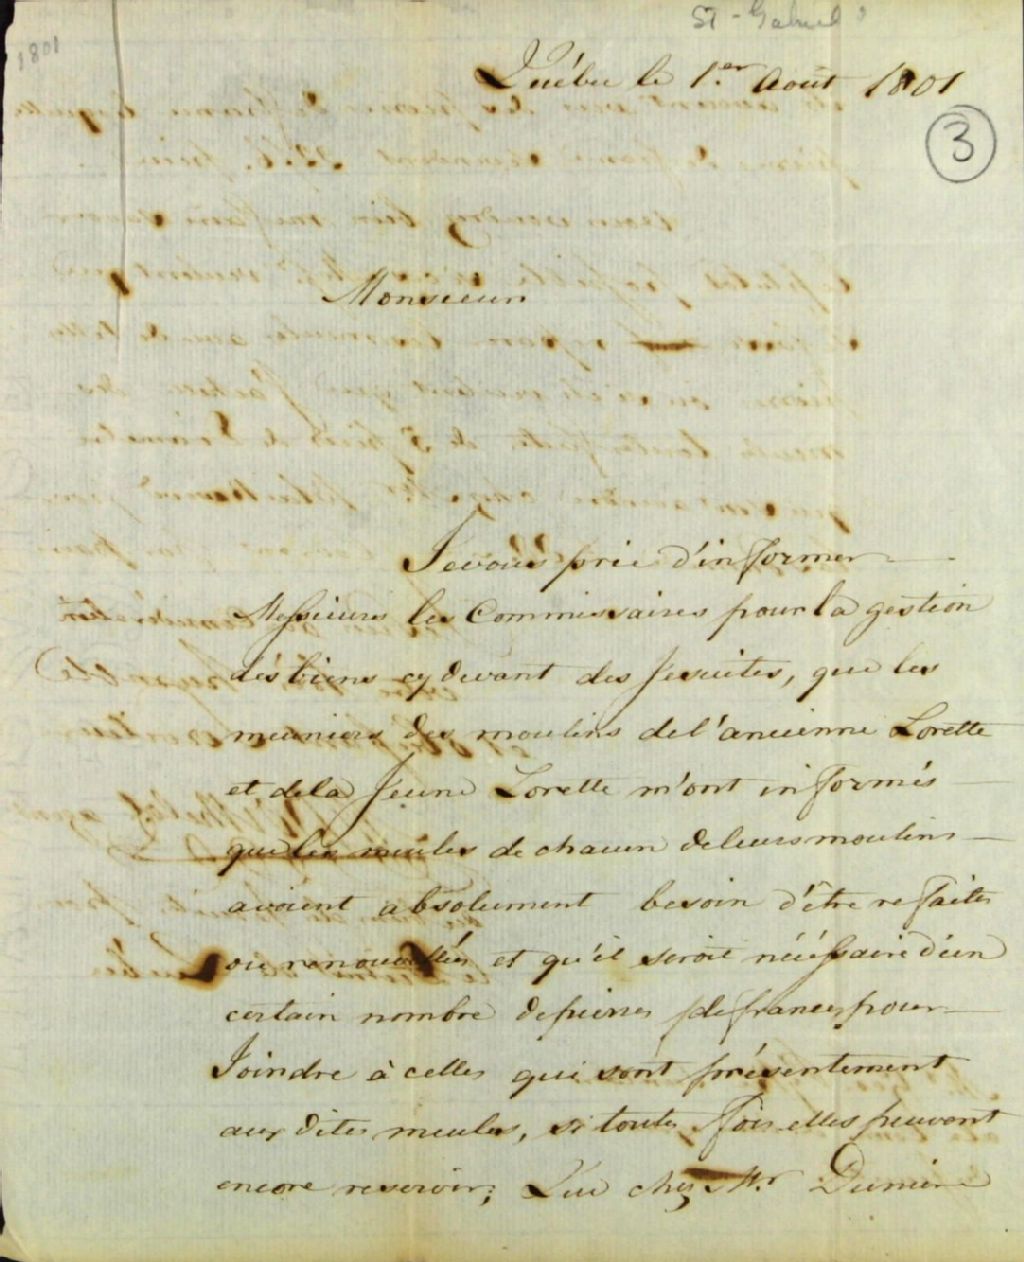 St-Gabriel
1801
Québec le 1.er Août 1801
3
Monsieur
Je vous prie d'informer
Messieurs les Commissaires pour la gestion
des biens cy devant des Jesuites, que les
meuniers des moulins de l'ancienne Lorette
et de la Jeune Lorette m'ont informés
que les meules de chacun de leurs moulins
avoient absolument besoin d'être refaites
ou renouvellés et qu'il seroit nécéssaire d'un
certain nombre de pierres (de france) pour
Joindre à celles qui sont présentement
aux dites meules, si toutes fois elles peuvent
encore reservir; Que chez Mr. Dumier